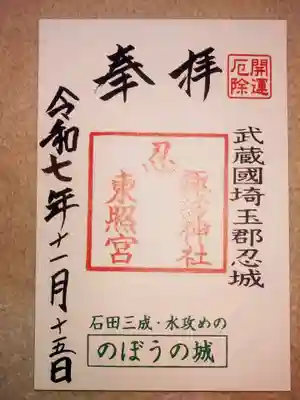 奉拝
開運
厄除
武蔵國埼玉郡忍城
忍
諏訪神社
東照宮
石田三成・水攻めの
のぼうの城
令和七年十一月十五日